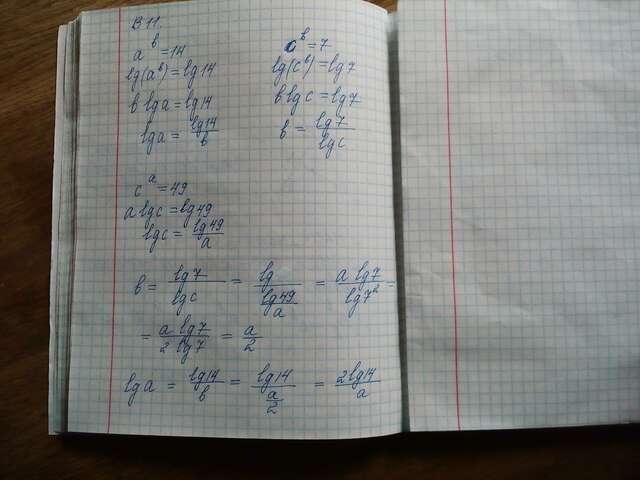 В 11.
a^b = 14
lg(a^b) = lg14
b lga = lg14
lga = lg14/b
c^b = 7
lg(c^b) = lg7
b lgc = lg7
b = lg7/lgc
c^a = 49
a lgc = lg49
lgc = lg49/a
b = lg7/lgc = lg/(lg49/a) = a lg7/lg7² =
= a lg7/2 lg7 = a/2
lga = lg14/b = lg14/(a/2) = 2lg14/a